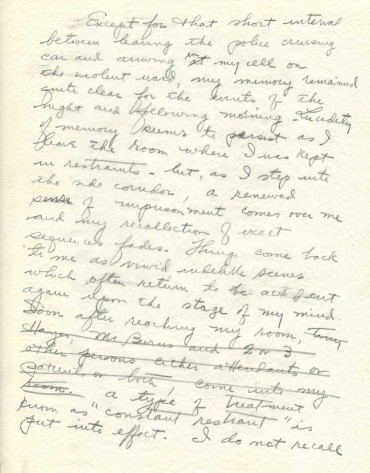 Except for that short interval
between leaving the police cruising
car and arriving at my cell on
the violent ward, my memory remained
quite clear for the events of the
night and following morning. Lucidity
of memory seems to persist as I
leave the room where I was kept
in restraints - but, as I step into
the side corridor, a renewed
sense of imprisonment comes over me
and my recollection of exact
sequences fades. Things come back
to me as vivid indelible scenes
which often return to be acted out
again upon the stage of my mind.
Soon after reaching my room,
Hayes, Mr Burns and 2 or 3
other persons either attendants or
patients or both, come into my
room. A type of treatment
known as "constant restraint" is
put into effect. I do not recall